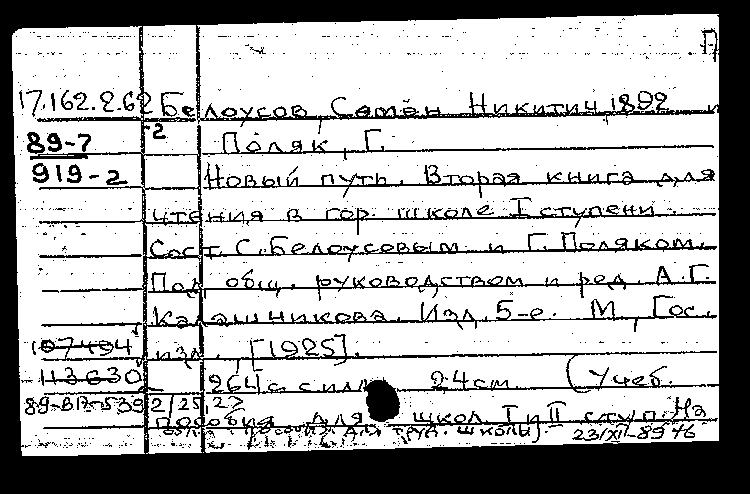 П
17.162.2.62 Белоусов, Семён Никитич, 1892 и
89-7 -2 Поляк, Г.
919-2 Новый путь. Вторая книга для
чтения в гор. школе I ступени.
Сост. С. Белоусовым и Г. Поляком.
Под общ. руководством и ред. А.Г.
Калашникова. Изд. 5-е. М., Гос.
107494 изд., [1925].
113630 264 с. с илл. 24 см. (Учеб.
2/25,27
пособия для школ I и II ступ. На
труд. школы). 23/XII-89 46